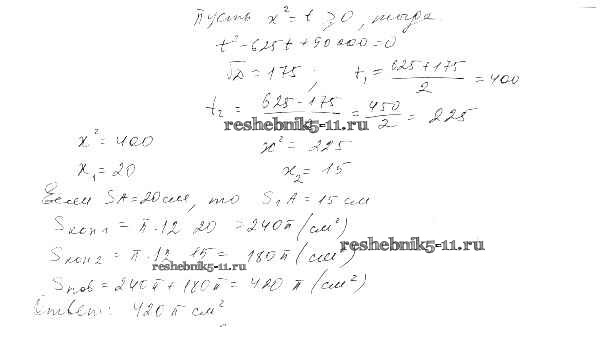 Пусть x² = t ≥ 0, тогда
t² - 625t + 90000 = 0
√D = 175; t₁ = (625+175)/2 = 400
t₂ = (625-175)/2 = 450/2 = 225
reshebnik5-11.ru
x² = 400 x² = 225
x₁ = 20 x₂ = 15
Если SA = 20 см, то S₁A = 15 см
Sкон1 = π·12 20 = 240π (см²)
Sкон2 = π·12 15 = 180π (см²)
reshebnik5-11.ru
reshebnik5-11.ru
Sпов = 240π + 180π = 420π (см²)
Ответ: 420π см²